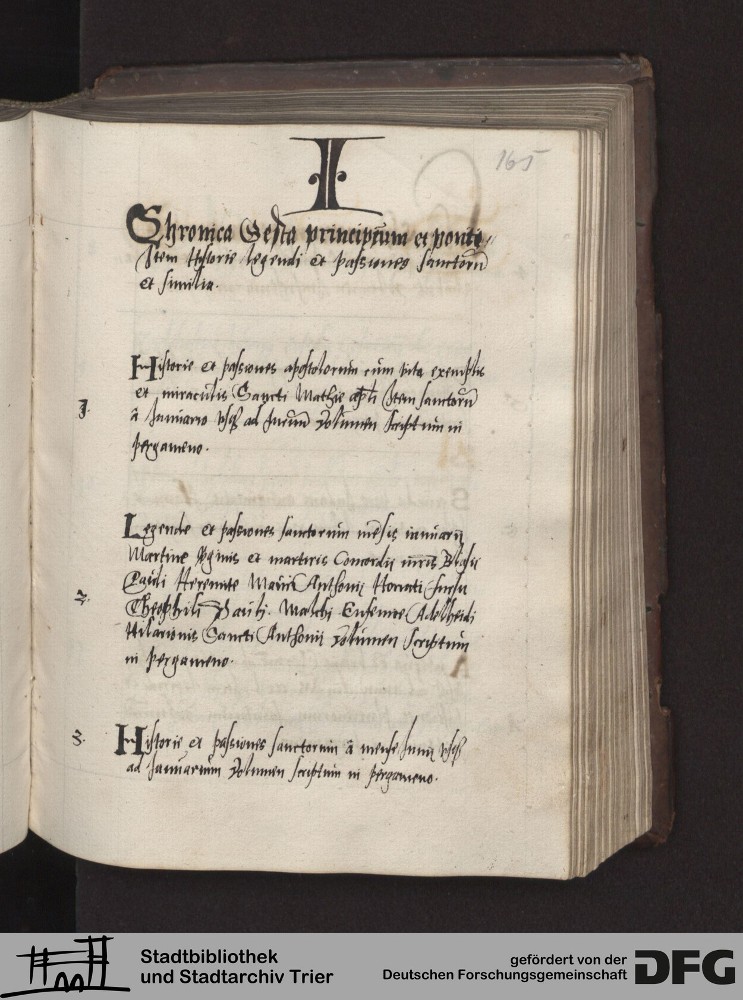 I
165
Chronica Gesta principum et ponti
Item Historie legendi et passiones sanctorū
et similia.
Historie et passiones apostolorum cum vita exemplis
et miraculis Sancti Mathie apli Item sanctorū
1. a Januario vsq ad Juniū volumen scriptum in
pergameno.
Legende et passiones sanctorum mēsis ianuarij
Martine vginis et martiris Concordij mris Blasij
Pauli Heremite Mauri Anthonij Honorati fursei
2. Theophili Pauli. Malchi Eufemie Adelheidi
Hilarionis Sancti Anthonij volumen scriptum
in pergameno.
3. Historie et passiones sanctorum a mense Junij vsq
ad Januarium volumen scriptum in pergameno.
Stadtbibliothek
und Stadtarchiv Trier
gefördert von der
Deutschen Forschungsgemeinschaft
DFG